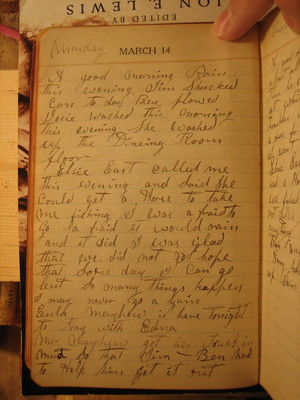 ION E. LEWIS
EDITED BY
Monday
MARCH 14
A good morning Rain
this evening Jim Shucked
Corn to day Ben plowed
Dosie washed this morning
this evening She washed
up the Dineing Room
floor
Elsie East called me
this evening and Said She
Could get a Horse to take
me fishing I was afraid to
go a fraid it would rain
and it did I was Glad
that we did not go hope
that Some day I Can go
but So many things happen
I may never go a gain
Mayhew is here tonight
to Stay with Edna
Mr Mayhew got his Truck in
mud So that Jim - Ben had
to Help him Get it out